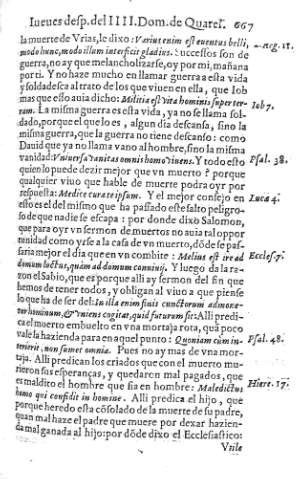 Iueues desp. del IIII. Dom. de Quares. 667
la muerte de Vrias, le dixo: Varius enim est euentus belli,
modo hunc, modo illum interficit gladius. Sucessos son de
guerra, no ay que melancholizarse, oy por mi, mañana
por ti. Y no haze mucho en llamar guerra a esta vida
y soldadesca al trato de los que viuen en ella, que Iob
mas que esso auia dicho: Militia est vita hominis super ter-
ram. La misma guerra es esta vida, ya no se llama sol-
dado, porque el que lo es, algun dia descansa, sino la
misma guerra, que la guerra no tiene descanso: como
Dauid que ya no llama vano al hombre, sino la misma
vanidad: Vniuersa vanitas omnis homo viuens. Y todo esto
quien lo puede dezir mejor que vn muerto? porque
qualquier viuo que hable de muerte podra oyr por
respuesta: Medice cura te ipsum. Y el mejor consejo en
esto es el del mismo que ha passado este salto peligro-
so de que nadie se escapa: por donde dixo Salomon,
que para oyr vn sermon de muertos no auia tal opor
tunidad como yrse a la casa de vn muerto, dõde se pas-
saria mejor el dia que en vn combite: Melius est ire ad
domum luctus, quàm ad domum conuiuij. Y luego da la ra-
zon el Sabio, que es porque alli ay sermon del fin que
hemos de tener todos, y obligan al viuo a que piense
lo que ha de ser del: In illa enim finis cunctorum admone-
tur hominum, & viuens cogitat, quid futurum sit: Alli predi-
ca el muerto embuelto en vna mortaja rota, quã poco
vale la hazienda para en aquel punto: Quoniam cùm in-
terierit, non sumet omnia. Pues no ay mas de vna mor-
taja. Alli predican los criados que con el muerto mu-
rieron sus esperanças, y quedaron mal pagados, que
es maldito el hombre que fia en hombre: Maledictus
homo qui confidit in homine. Alli predica el hijo, que
porque heredo esta cõsolado de la muerte de su padre,
quan mal haze el padre que muere por dexar hazien-
da mal ganada al hijo: por dõde dixo el Ecclesiastico:
Vtile
2. Reg. 11.
Iob 7.
Psal. 38.
Luca 4.
Eccles. 7.
Psal. 48.
Hiere. 17.